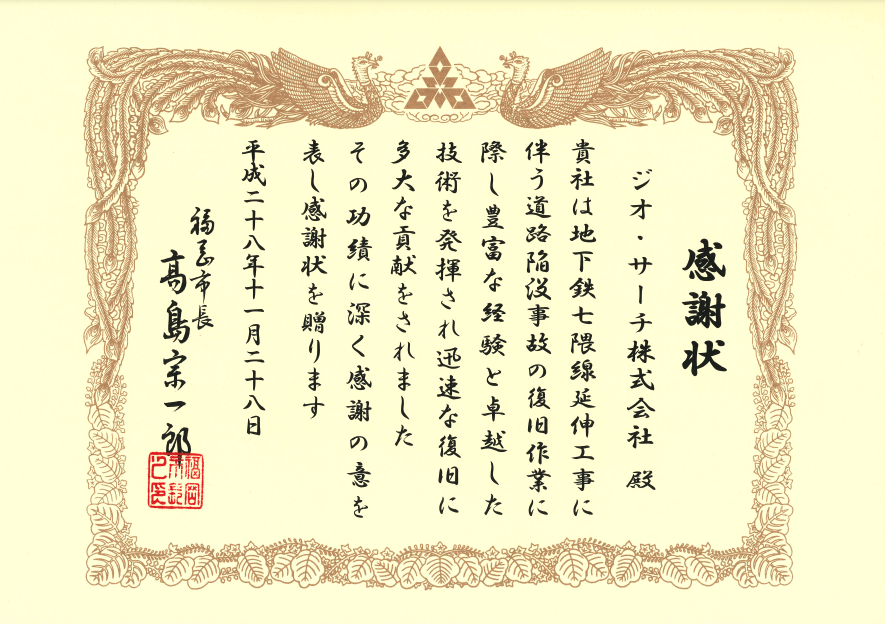 感謝状
ジオ・サーチ株式会社 殿
貴社は地下鉄七隈線延伸工事に
伴う道路陥没事故の復旧作業に
際し豊富な経験と卓越した
技術を発揮され迅速な復旧に
多大な貢献をされました
その功績に深く感謝の意を
表し感謝状を贈ります
平成二十八年十一月二十八日
福岡市長
高島宗一郎
福岡
市長
之印